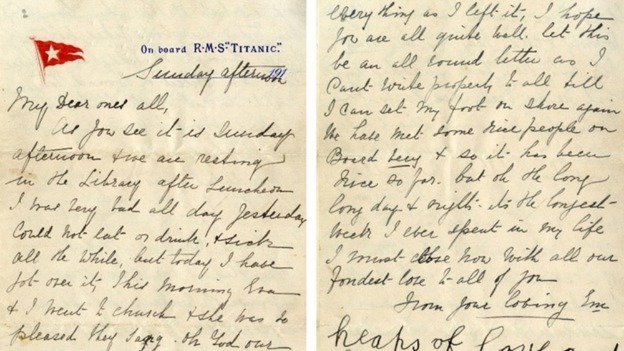 On board R·M·S "TITANIC."
Sunday afternoon 191
My Dear ones all,
As you see it is Sunday
afternoon & we are resting
in the Library after Luncheon
I was very bad all day Yesterday
Could not eat or drink, & sick
all the while, but today I have
got over it, This morning Eva
& I went to church & she was so
pleased they sang. oh God our
everything as I left it, I hope
you are all quite well. let this
be an all round letter as I
Cant write properly to all till
I can set my foot on shore again
We have met some nice people on
Board Lucy & so it has been
nice so far. but oh the long
long day & night. its the longest
week I ever spent in my life
I must close now with all our
fondest love to all of you
from your loving Em
heaps of love and